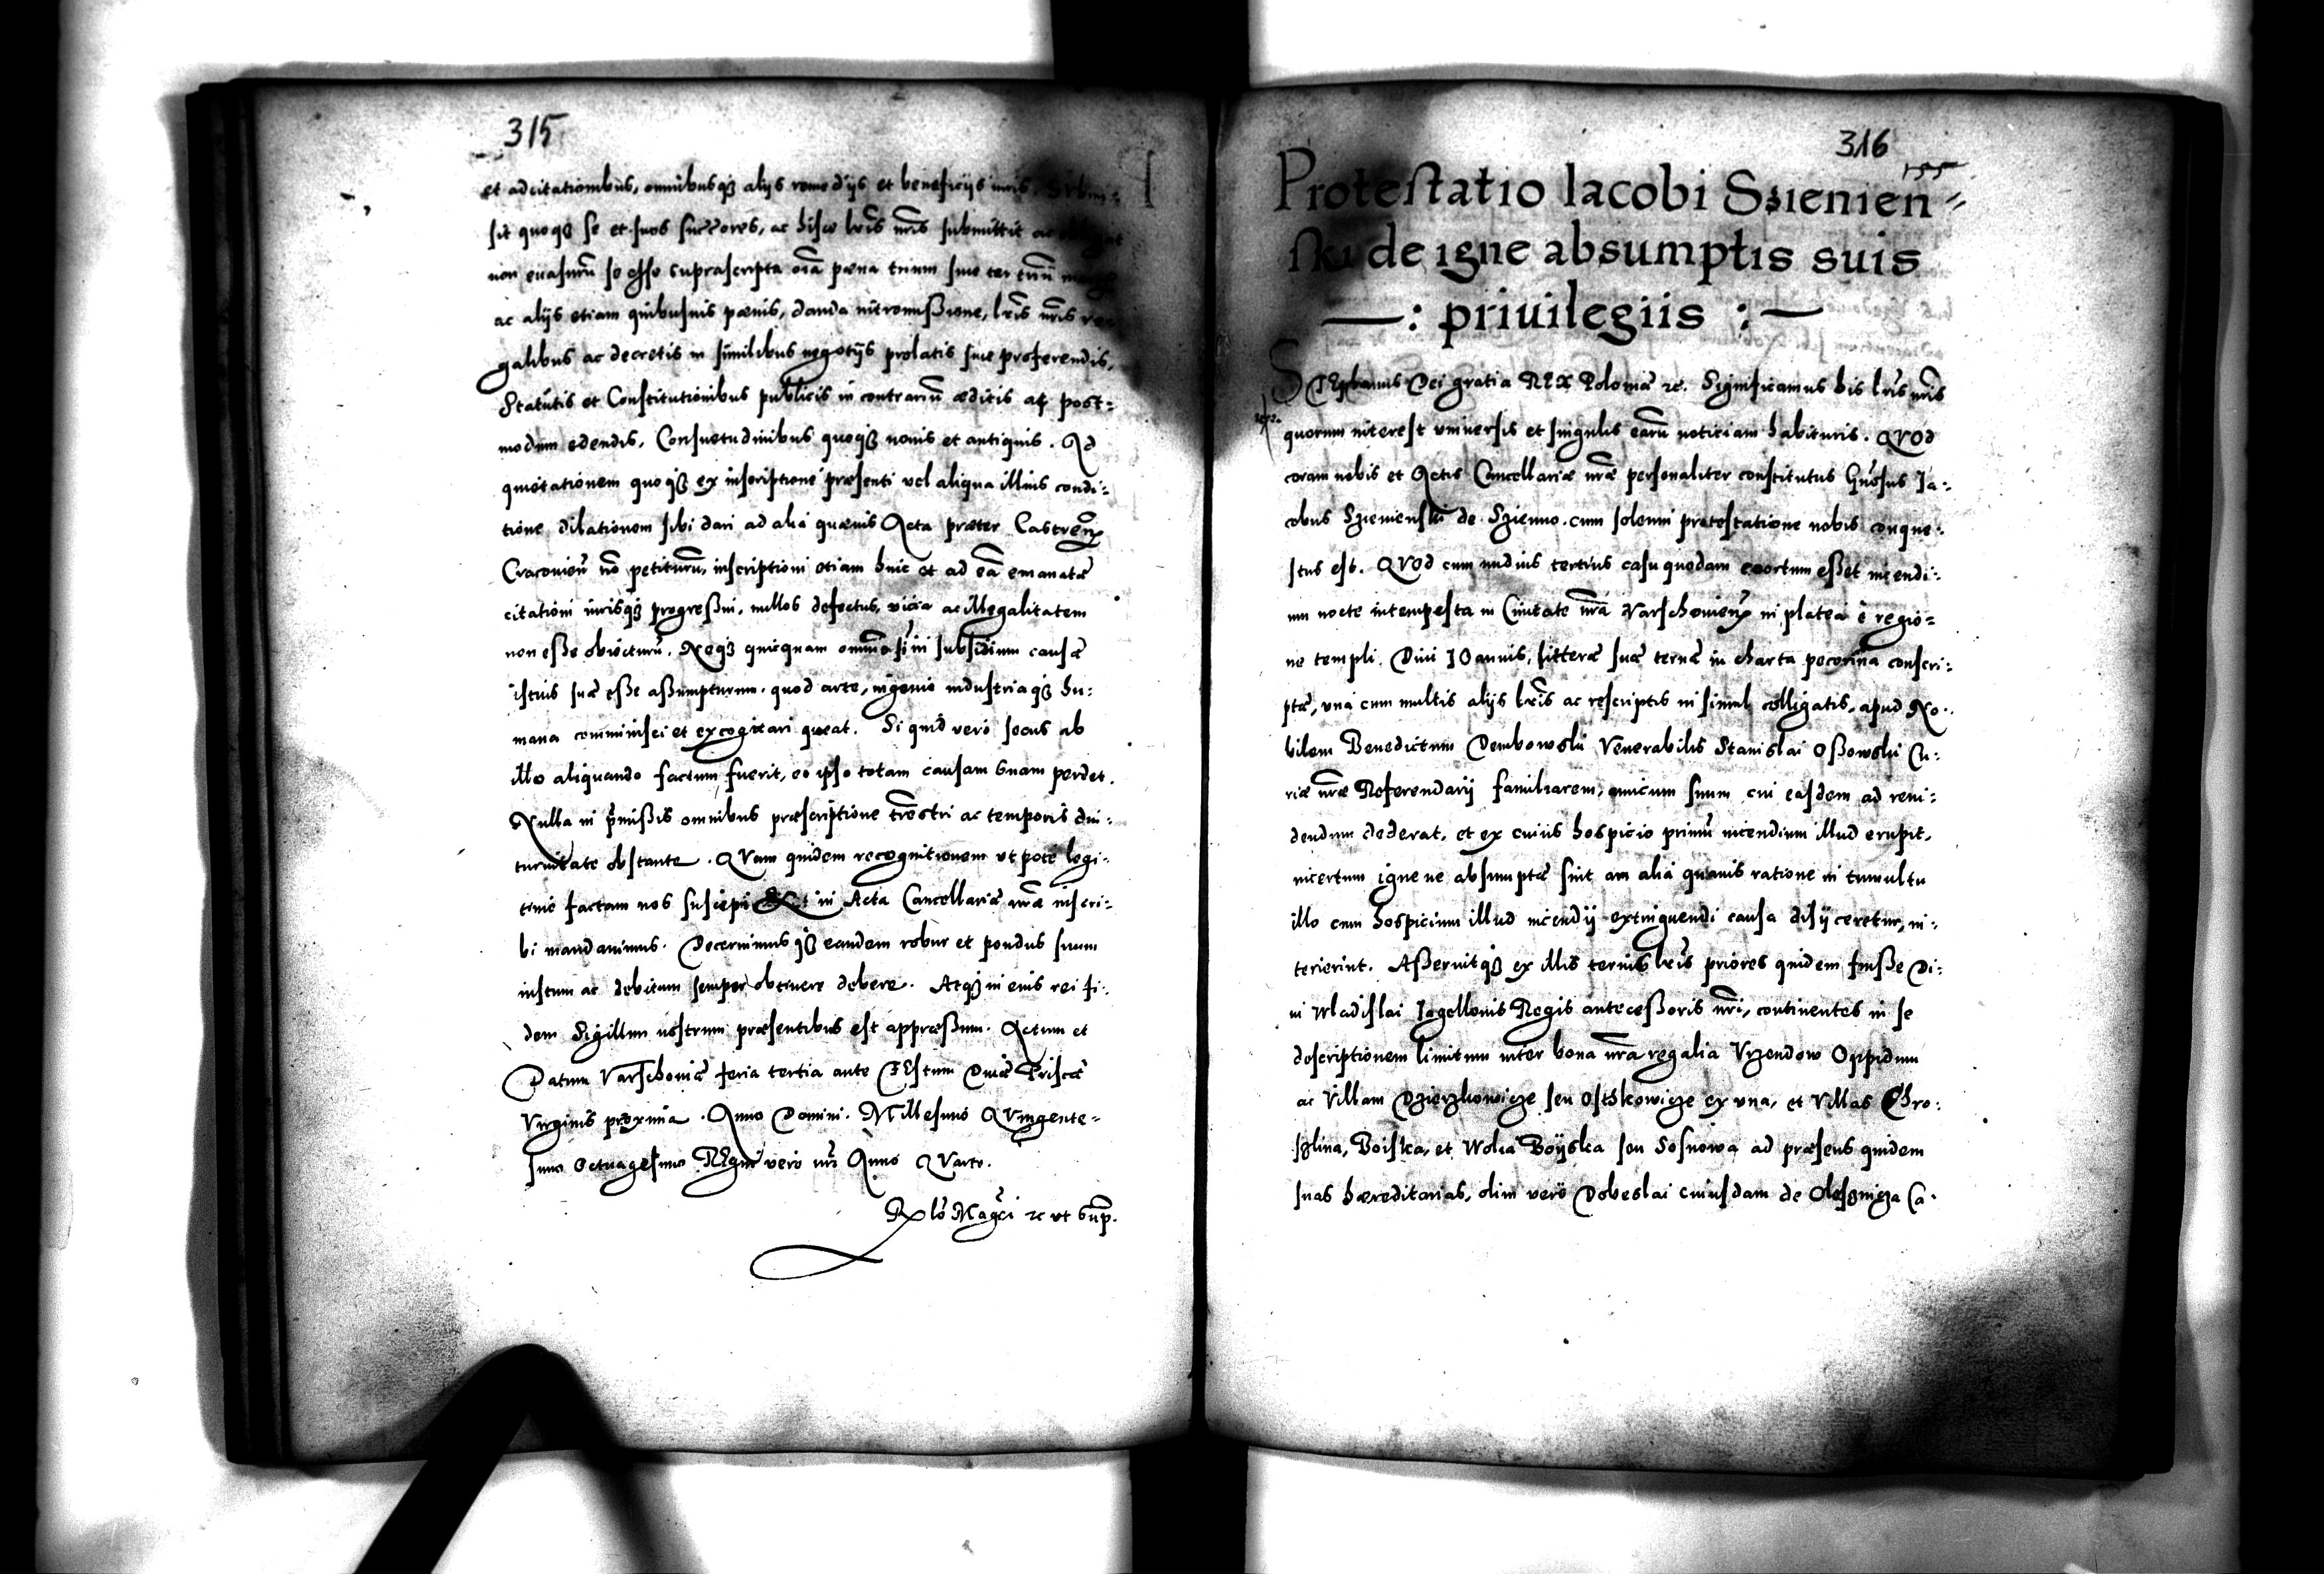 315
et adcitationibus, omnibusq3 alijs remedijs et beneficijs iuris. Submi=
sit quoq3 se et suos succores, ac hisce lris nris submittit ac
non euasurũ se esse suprascripta oĩa pæna trium siue ter
ac alijs etiam quibusuis pænis, danda intromissione, lris nris re
galibus ac decretis in similibus negotijs prolatis siue proferendis,
Statutis et Constitutionibus publicis in contrariũ æditis atq post=
modum edendis, Consuetudinibus quoq3 nouis et antiquis. Ad
quietationem quoq3 ex inscriptione præsenti vel aliqua illius condi=
tione dilationem sibi dari ad alia quæuis Acta præter Castren
Cracouień nõ petiturũ, inscriptioni etiam huic et ad eã emanatæ
citationi iurisq3 progressui, nullos defectus, vicia ac illegalitatem
non esse obiecturũ. Neq3 quicquam omnino in subsidium causæ
istius suæ esse assumpturum. quod arte, ingenio industriaq3 hu=
mana comminisci et excogitari queat. Si quid vero secus ab
illo aliquando factum fuerit, eo ipso totam causam suam perdet.
Nulla in p̃missis omnibus præscriptione trẽstri ac temporis diu=
turnitate obstante. QVam quidem recognitionem vt pote legi=
time factam nos suscepi et in Acta Cancellariæ nræ inscri=
bi mandauimus. Decernimusq3 eandem robur et pondus suum
iustum ac debitum semper obtinere debere. Atq3 in eius rei fi=
dem Sigillum nostrum præsentibus est appræssum. Actum et
Datum Varschouiæ feria tertia ante FEstum Diuæ Priscæ
Virginis proxima. Anno Domini. Millesimo QVingente=
simo Octuagesimo REgni vero nri Anno QVarto.
Rx lõ Magci 2c vt Sup.
316
155
Protestatio Iacobi Szienien=
ski de igne absumptis suis
—: priuilegiis :—
STEphanus Dei gratia REX Poloniæ 2c. Significamus his lris nris
quorum interest vniuersis et singulis earũ noticiam habituris. QVOd
coram nobis et Actis Cancellariæ nræ personaliter constitutus Gñosus Ia=
cobus Szienienski de Szienno cum solenni protestatione nobis conque=
stus est. QVOd cum nudius tertius casu quodam exortum esset incendi=
um nocte intempesta in Ciuitate nra Varschouien in platea e regio=
ne templi Diui IOannis, litteræ suæ ternæ in charta pecorina conscri=
ptæ, vna cum multis alijs lris ac rescriptis in simul colligatis, apud No=
bilem Benedictum Dembowski Venerabilis Stanislai Ossowski Cu=
riæ nræ Referendarij familiarem, amicum suum cui easdem ad reui=
dendum dederat, et ex cuius hospicio primũ incendium illud erupit,
incertum igne ne absumptæ sint an alia quauis ratione in tumultu
illo cum hospicium illud incendij extinguendi causa disijceretur, in=
terierint. Asseruitq3 ex illis ternis lris priores quidem fuisse Di=
ui Wladislai Iagellonis Regis antecessoris nri, continentes in se
descriptionem limitum inter bona nra regalia Vrzendow Oppidum
ac Villam Dzierzkowicze seu Ostkowicze ex vna, et Villas Chro=
szlina, Boiska, et Wolia Boijska seu Sosnowa ad præsens quidem
suas hæreditarias, olim vero Dobeslai cuiusdam de Olesznicza Ca=